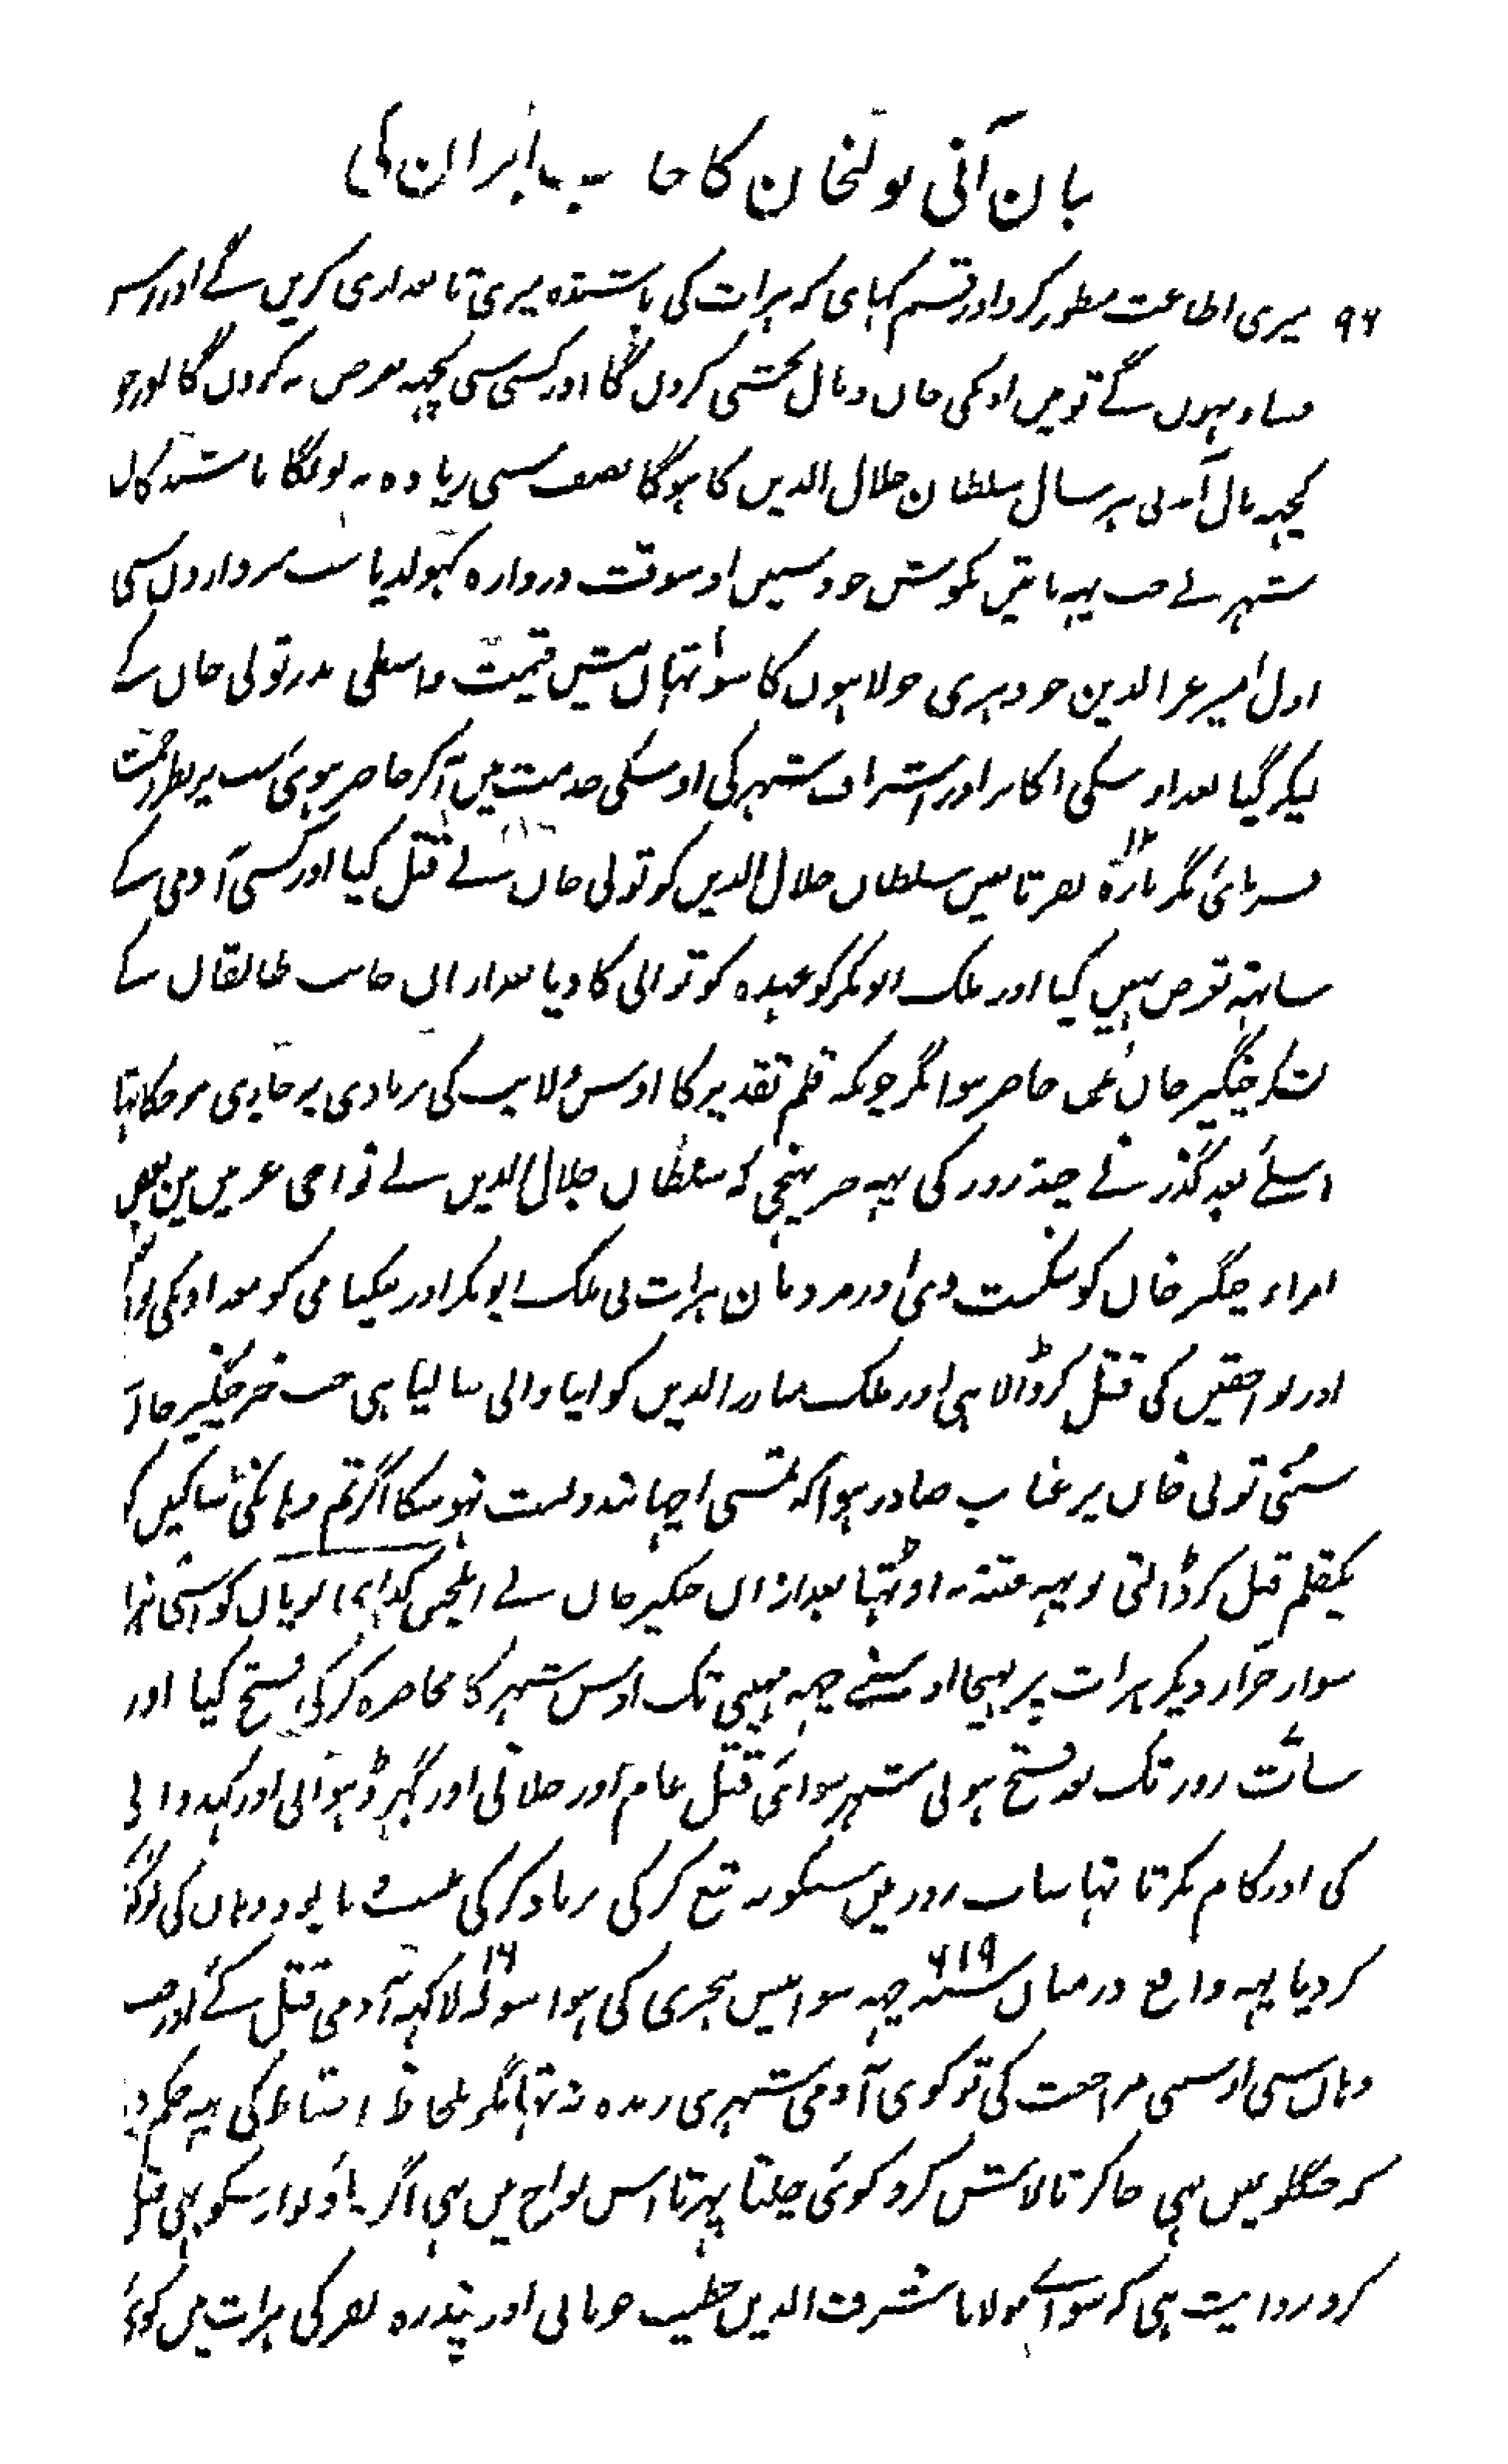 بیان آنی تولیخان کا جانب ایران کی
۹۶ میری اطاعت منظور کرو اور قسم کہائی کہ ہرات کی باشندہ میری تابعداری کریں گے اور
ہوں گے تو میں اونکی جان و مال بخشی کردوں گا اور کسی سی کچہہ تعرض نہ کروں گا اور جو
کچہہ مال آمدنی ہر سال سلطان جلال الدین کا ہوگا نصف سی زیادہ نہ لونگا باشندگان
شہر نے جب یہہ باتیں بگوش خود سنیں اوسوقت دروازہ کہولدیا سب سرداروں سی
اول امیر عز الدین جو دہری جولاہوں کا سو تہان بیش قیمت واسطی نذر تولی خاں کے
لیکر گیا بعد اوسکی اکابر اور اشراف شہر کی اوسکی خدمت میں آکر حاضر ہوئی سب پر نظر رحمت
فرمائی مگر بارہ نفر تابعین سلطان جلال الدین کو تولی خاں نے قتل کیا اور کسی آدمی کے
ساتہہ تعرض نہیں کیا اور ملک ابوبکر کو عہدہ کوتوالی کا دیا بعد ازاں جانب طالقان کے
لشکر چنگیز خاں میں حاضر ہوا مگر چونکہ قلم تقدیر کا اوس ولایت کی بربادی پر جاری ہوچکا تہا
اسلئے بعد گذرنے چند روز کی یہہ خبر پہنچی کہ سلطان جلال الدین نے نواحی غزنین میں بعض
امراء چنگیز خاں کو شکست دی اور مردمان ہرات نی ملک ابوبکر اور کو معہ اونکی
اور لواحقین کی قتل کر ڈالا ہی اور ملک مبارز الدین کو اپنا والی بنا لیا ہی جب خبر چنگیز خاں
سنی تولی خاں پر عتاب صادر ہوا کہ تمسی اچہا بندوبست نہو سکا اگر تم وہانکی ساکنین کو
یکقلم قتل کر ڈالتی تو یہہ فتنہ نہ اوٹہتا بعد ازاں چنگیز خاں نے ایلچی کو اسی ہزار
سوار جرار دیکر ہرات پر بہیجا اوسنے چہہ مہینی تک اوس شہر کا محاصرہ کرکی فتح کیا اور
سات روز تک بعد فتح ہونی شہر سوائی قتل عام اور جلانی اور گہر ڈہوانی اور کہدوانی
کی اور کام نکرتا تہا سات روز میں سبکو تہ تیغ کرکی برباد کرکی نیست و نابود وہاں کی لوگونکو
کردیا یہہ واقع درمیان سنہ ۶۱۹ چہہ سو انیس ہجری کی ہوا سولہ ۱۶ لاکہہ آدمی قتل کئے اور جب
وہاں سی اوسی مراجعت کی تو کوی آدمی شہری زندہ نہ تہا مگر بلحاظ احتیاط کی یہہ حکم دیا
کہ جنگلو میں بہی جاکر تالاش کرو کوئی چلتا پہرتا اس نواح میں بہی اگر پاؤ تو اوسکو بہی قتل
کرو روایت ہی کہ سوائے مولانا شرف الدین خطیب اور پندرہ نفر کی ہرات میں کوئی